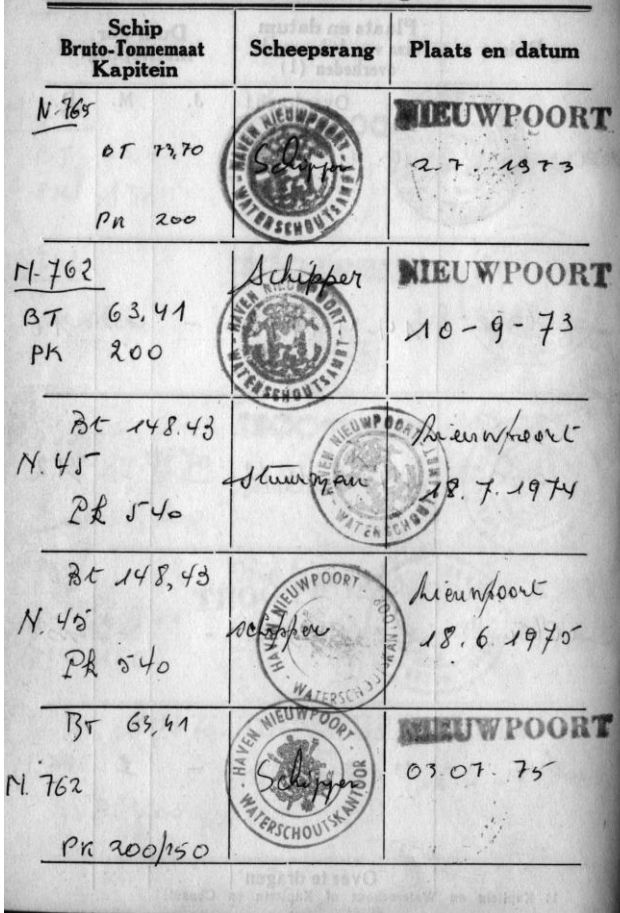 Schip
Bruto-Tonnemaat
Kapitein
Scheepsrang
Plaats en datum
N.765
BT 73,70
PK 200
Schipper
HAVEN NIEUWPOORT - WATERSCHOUTSAMBT
NIEUWPOORT
2.7.1973
N-762
BT 63,41
PK 200
Schipper
HAVEN NIEUWPOORT - WATERSCHOUTSAMBT
NIEUWPOORT
10-9-73
Bt 148.43
N. 45
Pk 540
Stuurman
HAVEN NIEUWPOORT - WATERSCHOUTSAMBT
Nieuwpoort
18.7.1974
Bt 148,43
N. 45
Pk 540
schipper
HAVEN NIEUWPOORT - WATERSCHOUTSKANTOOR
Nieuwpoort
18.6.1975
BT 63,41
N. 762
PK 200/150
Schipper
HAVEN NIEUWPOORT - WATERSCHOUTSKANTOOR
NIEUWPOORT
03.07.75